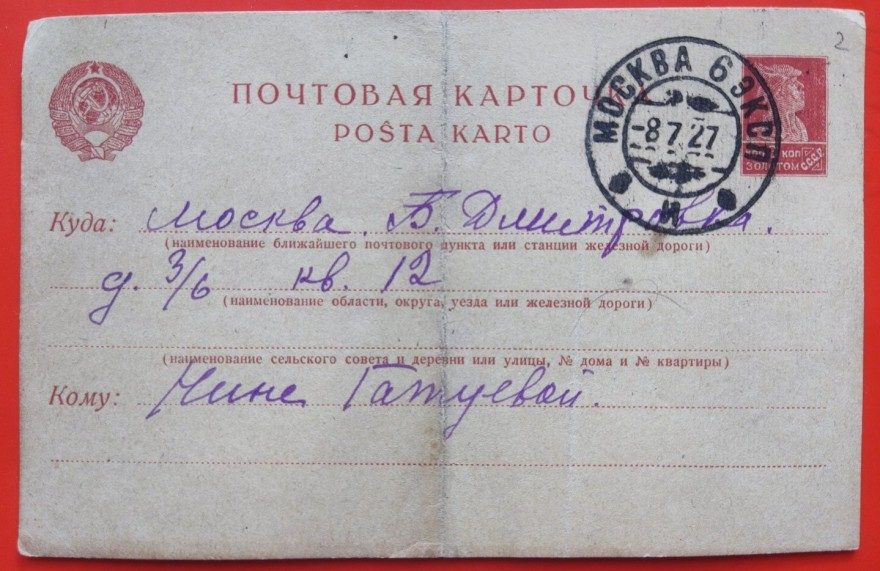 2
ПОЧТОВАЯ КАРТОЧКА
POŜTA KARTO
МОСКВА 6 ЭКСП
-8 7 27
И
КОП
ЗОЛОТОМ СССР
Куда: Москва. Б. Дмитровка.
(наименование ближайшего почтового пункта или станции железной дороги)
д. 3/6 кв. 12
(наименование области, округа, уезда или железной дороги)
(наименование сельского совета и деревни или улицы, № дома и № квартиры)
Кому: Нине Гатуевой.